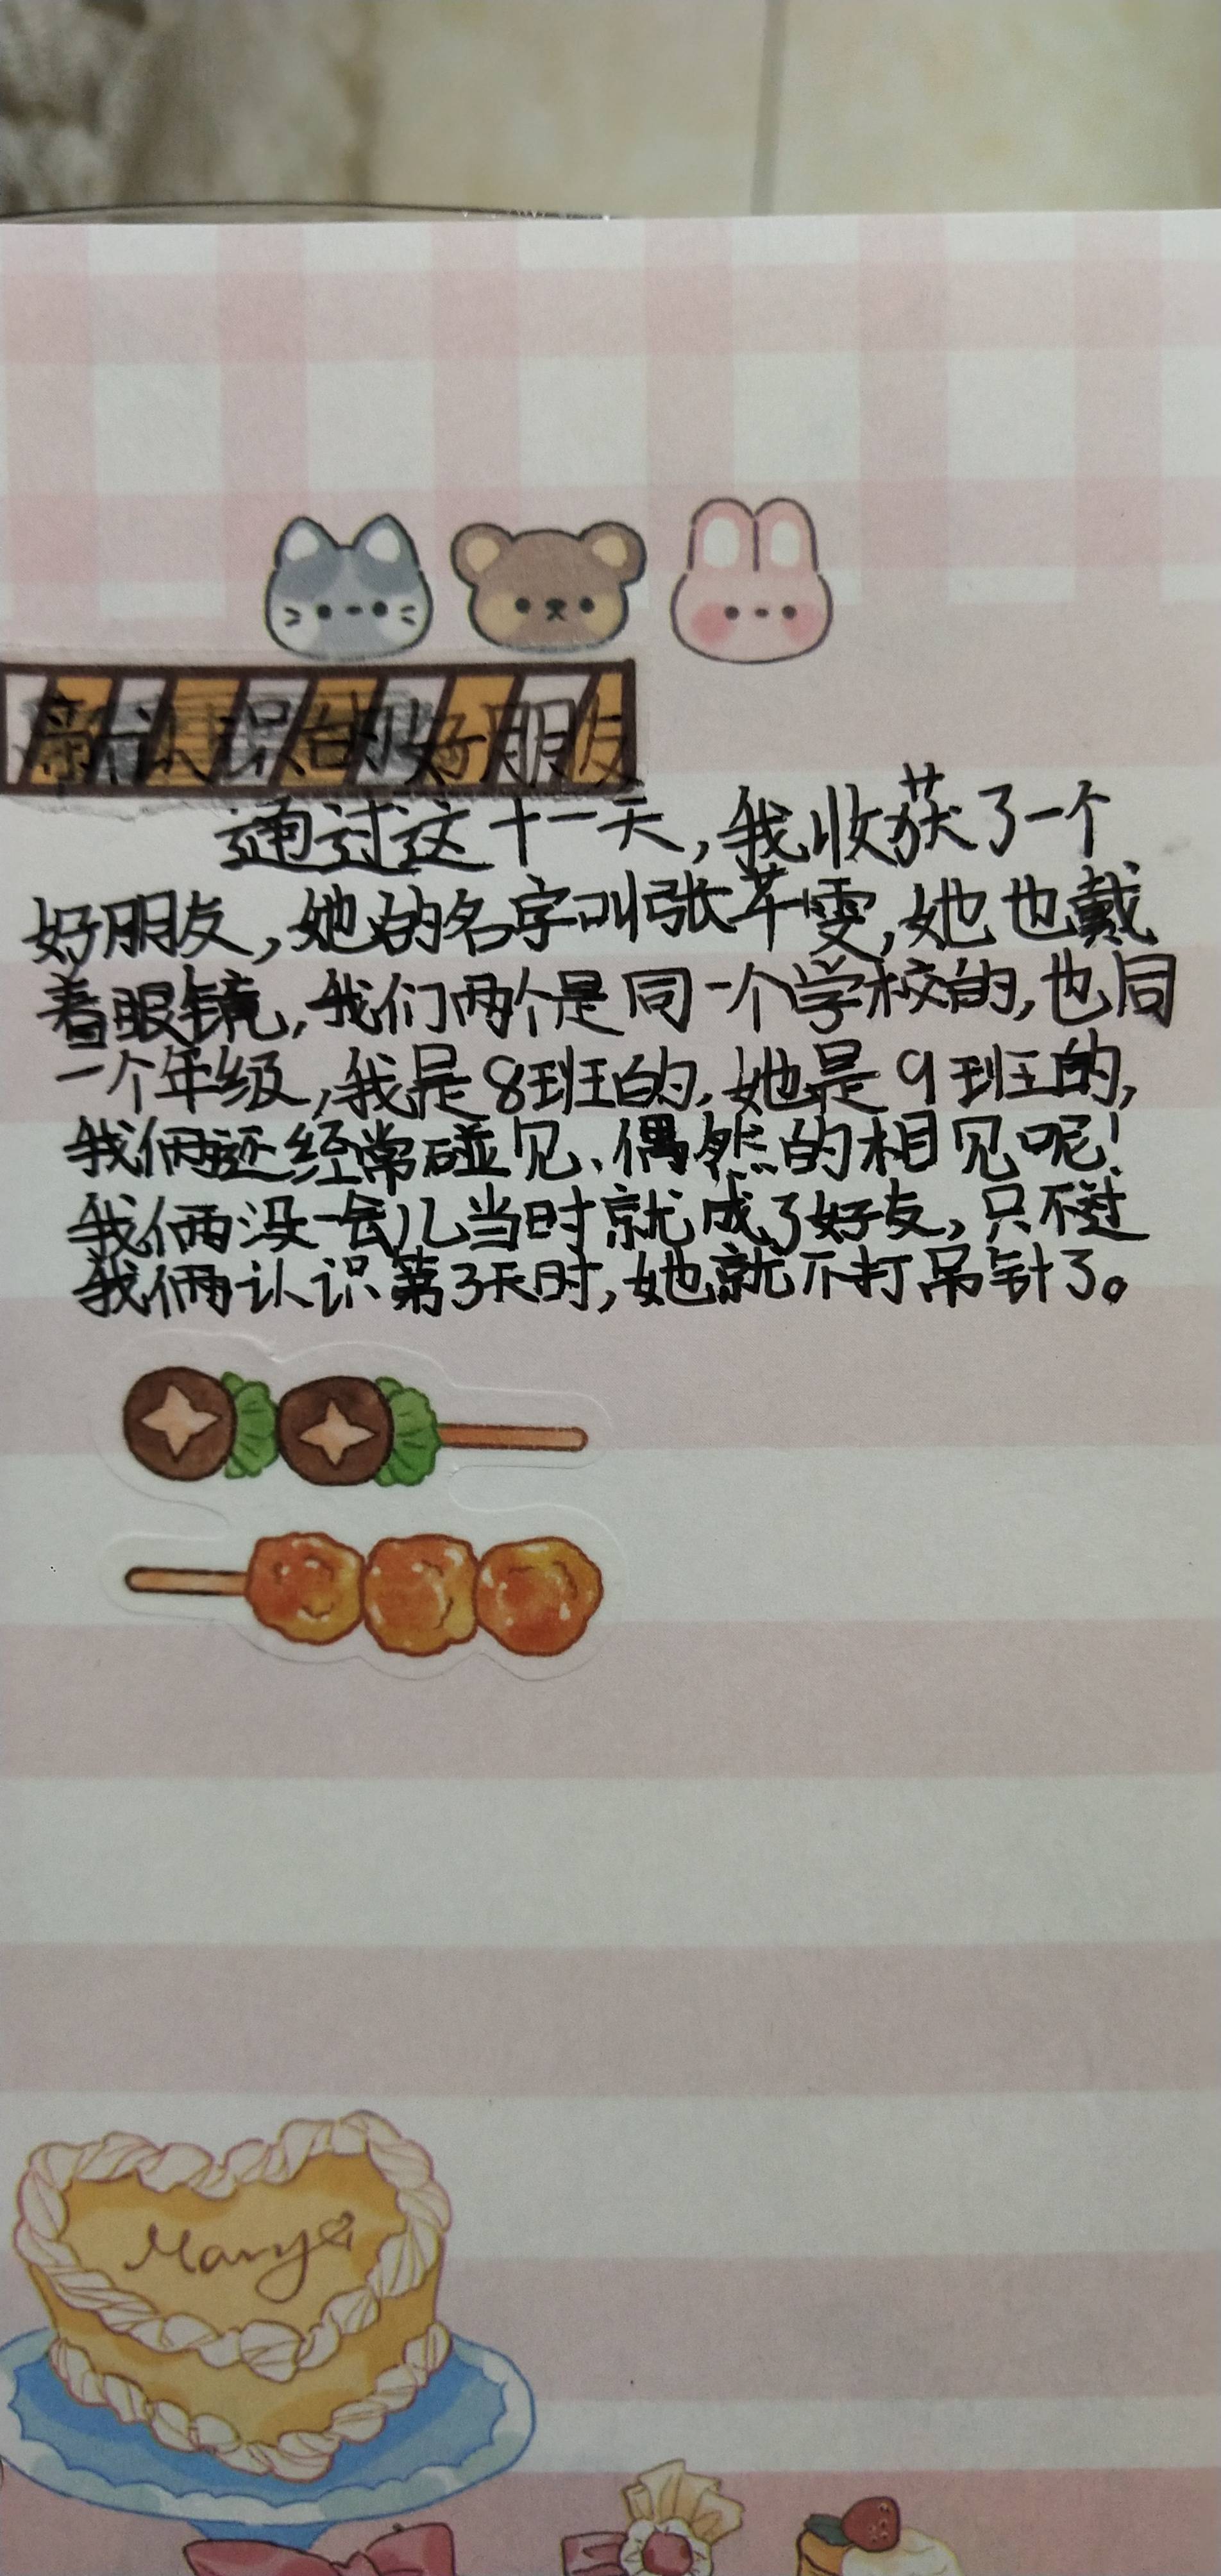 新认识的好朋友
通过这十一天,我收获了一个
好朋友,她的名字叫张芊雯,她也戴
着眼镜,我们两个是同一个学校的,也同
一个年级,我是8班的,她是9班的,
我俩还经常碰见、偶然的相见呢!
我俩没一会儿当时就成了好友,只不过
我俩认识第3天时,她就不打吊针了。
Mary